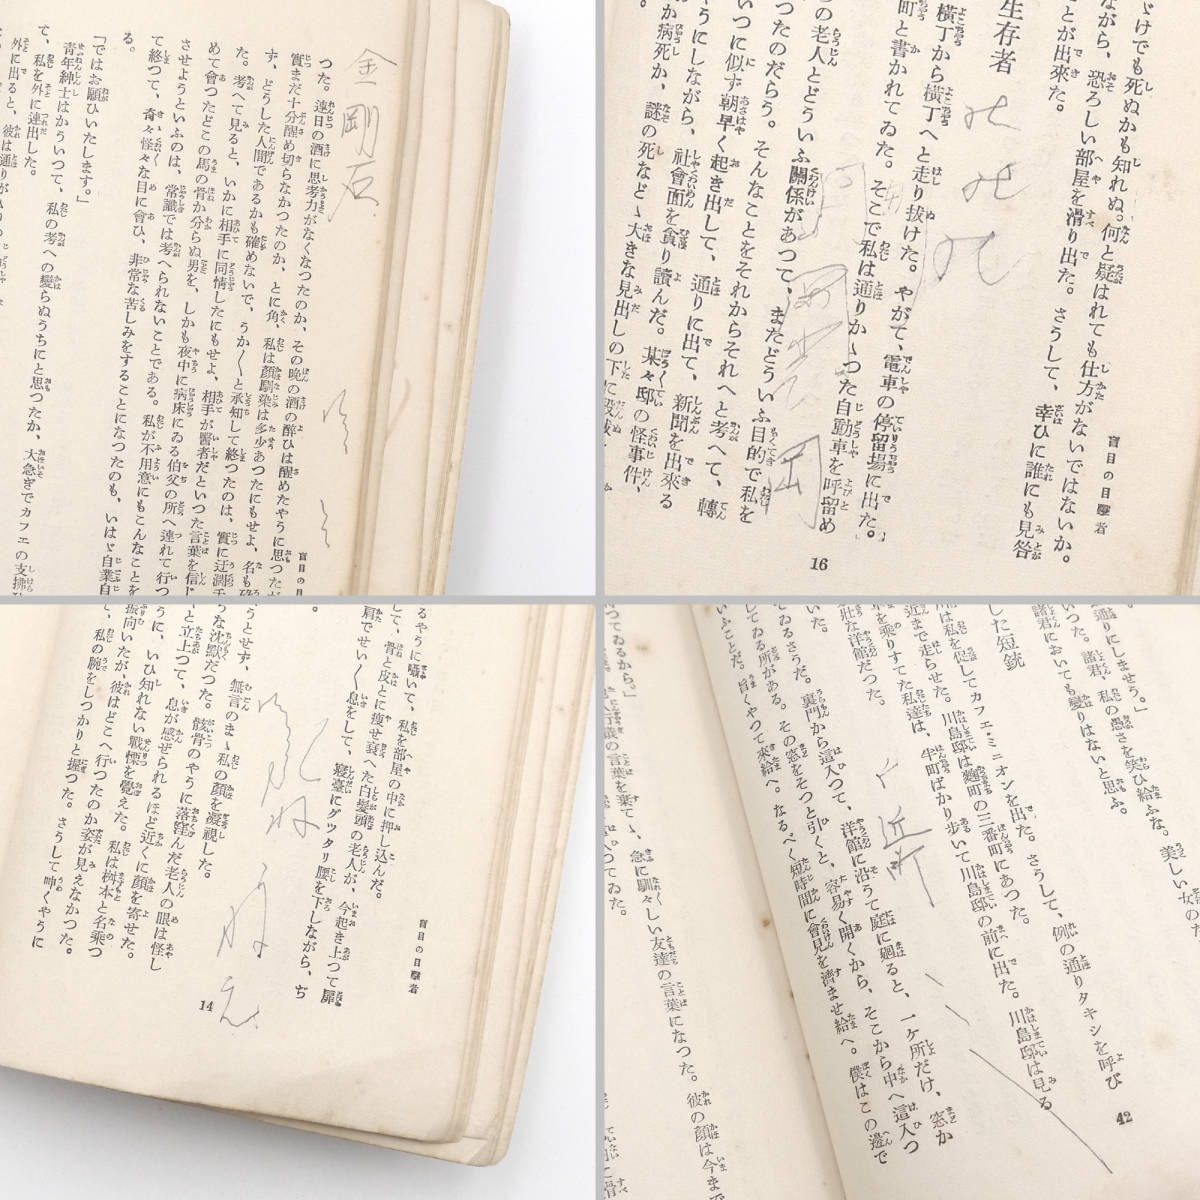 金剛石
つた。連日の酒に思考力がなくなつたのか、その晩の酒の醉ひは醒めたやうに思つた
實まだ十分醒め切らなかつたのか、とに角、私は顔馴染は多少あつたにもせよ、名も
ず、どうした人間であるかも確めないで、うか〱と承知して終つたのは、實に迂濶
た。考へて見ると、いかに相手に同情したにもせよ、相手が醫者だといつた言葉を信じ
めて會つたどこの馬の骨か分らぬ男を、しかも夜中に病床にゐる伯父の所へ連れて行つ
させようといふのは、常識では考へられないことである。私が不用意にもこんなことを
て終つて、奇々怪々な目に會ひ、非常な苦しみをすることになつたのも、いはゞ自業自
る。
「ではお願ひいたします。」
青年紳士はかういつて、私の考への變らぬうちにと思つたか、大急ぎでカフエの支拂
て、私を外に連出した。
外に出ると、彼は通りが
盲目の目
ゞけでも死ぬかも知れぬ。何と疑はれても仕方がないではないか。
ながら、恐ろしい部屋を滑り出た。さうして、幸ひに誰にも見咎
ことが出來た。
生存者
横丁から横丁へと走り拔けた。やがて、電車の停留場に出た。
町と書かれてゐた。そこで私は通りかゝつた自動車を呼留め
の老人とどういふ關係があつて、またどういふ目的で私を
つたのだらう。そんなことをそれからそれへと考へて、轉
いつに似ず朝早く起き出して、通りに出て、新聞を出來る
やうにしながら、社會面を貪り讀んだ。某々邸の怪事件、
か病死か、謎の死などゝ大きな見出しの下に
盲目の目擊者
16
るやうに囁いて、私を部屋の中に押し込んだ。
して、骨と皮とに痩せ衰へた白髮頭の老人が、今起き上つて扉
肩でせい〱息をして、寢臺にグツタリ腰を下しながら、ぢ
。
うとせず、無言のまゝ私の顔を凝視した。
な沈默だつた。骸骨のやうに落窪んだ老人の眼は怪し
と立上つて、息が感ぜられるほど近くに顔を寄せた。
うに、いひ知れない戰慄を覺えた。私は桝本と名乘つ
振向いたが、彼はどこへ行つたのか姿が見えなかつた。
私の腕をしつかりと握つた。さうして呻くやうに
盲目の目擊者
14
通りにしませう。」
いつた。諸君、私の愚さを笑ひ給ふな。美しい女の
諸君においても變りはないと思ふ。
した短銃
川は私を促してカフエ・ミニオンを出た。さうして、例の通りタキシを呼び
近まで走らせた。川島邸は麹町の三番町にあつた。
車を乘りすてた私達は、半町ばかり歩いて川島邸の前に出た。川島邸は見る
壯な洋館だつた。
た。
てゐるさうだ。裏門から這入つて、洋館に沿うて庭に廻ると、一ケ所だけ、窓か
してゐる所がある。その窓をそつと引くと、容易く開くから、そこから中へ這入つ
いふことだ。旨くやつて來給へ。なるべく短時間に會見を濟ませ給へ。僕はこの邊で
待つてゐるから。」
行儀の言葉を棄てゝ、急に馴々しい友達の言葉になつた。彼の顔は今ま
つてゐた。
近所
42